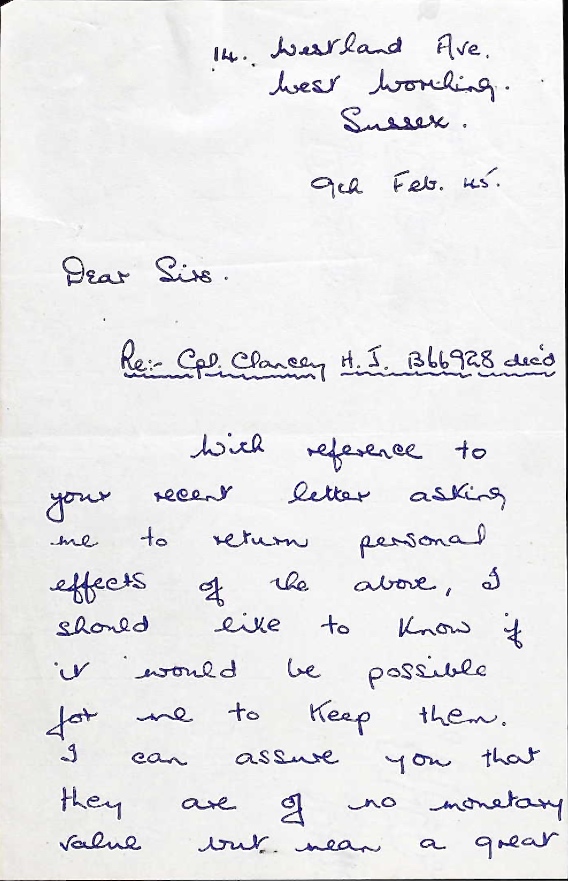 14. Westland Ave.
West Worthing.
Sussex.
9th Feb. 45.
Dear Sirs.
Re:- Cpl. Clancey H. J. B66928 dec'd
With reference to
your recent letter asking
me to return personal
effects of the above, I
should like to know if
it would be possible
for me to keep them.
I can assure you that
they are of no monetary
value but mean a great